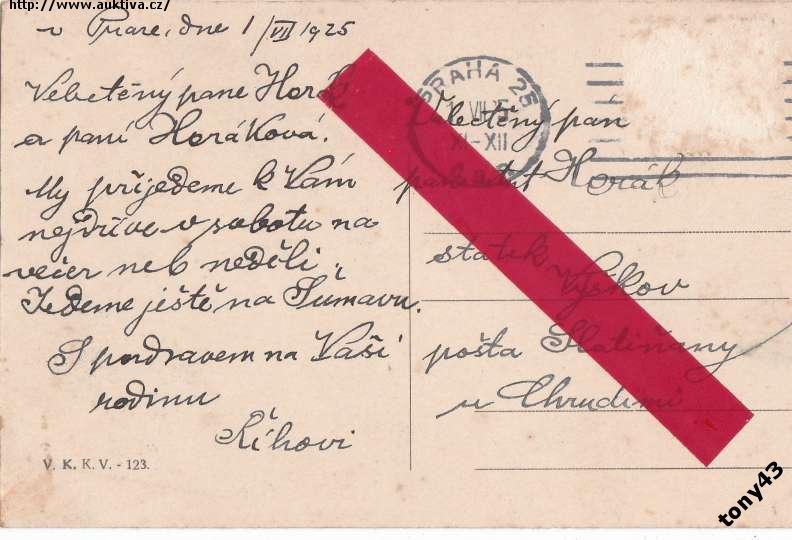 http://www.auktiva.cz/
v Praze, dne 1/VII 1925
Velectěný pane Horák
a paní Horáková.
My přijedeme k Vám
nejdříve v sobotu na
večer neb neděli.
Jedeme ještě na Šumavu.
S pozdravem na Vaši
rodinu
Říhovi
V. K. K. V. - 123.
PRAHA 25
VII
XI-XII
Velectěný pán
pan Horák
statek Vyškov
pošta Slatiňany
u Chrudimi
tony43